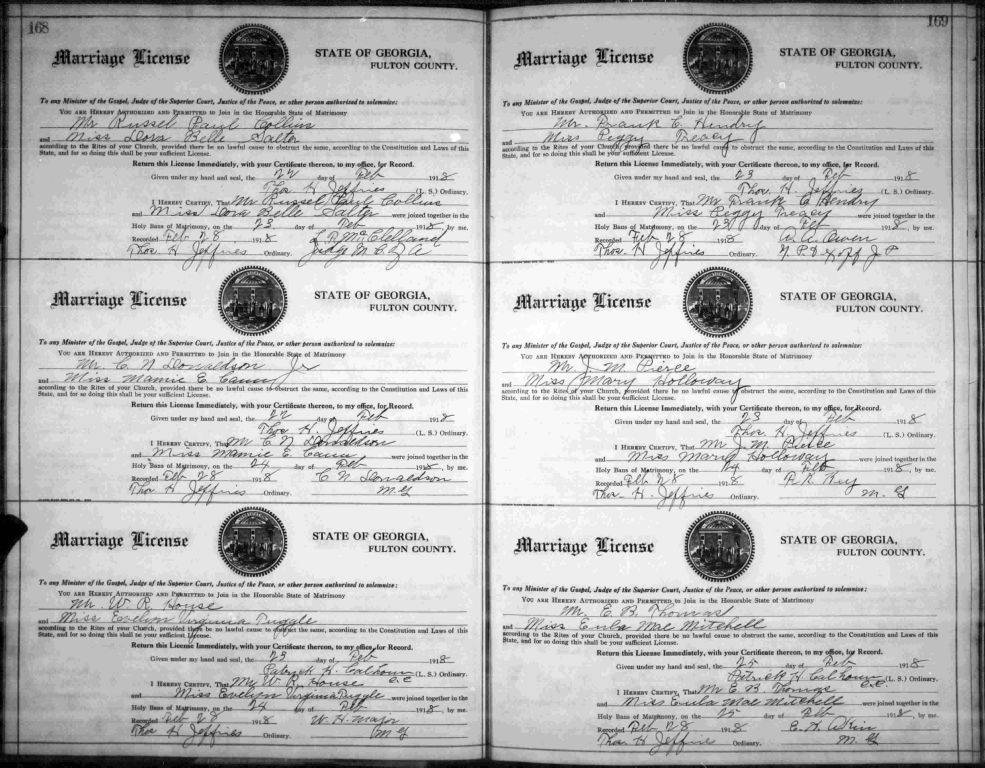 168
Marriage License
STATE OF GEORGIA,
FULTON COUNTY.
To any Minister of the Gospel, Judge of the Superior Court, Justice of the Peace, or other person authorized to solemnize:
YOU ARE HEREBY AUTHORIZED AND PERMITTED to Join in the Honorable State of Matrimony
Mr Russel Paul Collins
and Miss Dora Belle Salter
according to the Rites of your Church, provided there be no lawful cause to obstruct the same, according to the Constitution and Laws of this
State, and for so doing this shall be your sufficient License.
Return this License Immediately, with your Certificate thereon, to my office, for Record.
Given under my hand and seal, the 22 day of Feb 1918
Thos H Jeffries (L. S.) Ordinary.
I HEREBY CERTIFY, That Mr Russel Paul Collins
and Miss Dora Belle Salter were joined together in the
Holy Bans of Matrimony, on the 23 day of Feb 1918, by me.
Recorded Feb 28 1918 McClelland
Thos. H Jeffries Ordinary. Judge M C
Marriage License
STATE OF GEORGIA,
FULTON COUNTY.
To any Minister of the Gospel, Judge of the Superior Court, Justice of the Peace, or other person authorized to solemnize:
YOU ARE HEREBY AUTHORIZED AND PERMITTED to Join in the Honorable State of Matrimony
Mr. C N Donaldson Jr
and Miss Mamie E. Cann
according to the Rites of your Church, provided there be no lawful cause to obstruct the same, according to the Constitution and Laws of this
State, and for so doing this shall be your sufficient License.
Return this License Immediately, with your Certificate thereon, to my office, for Record.
Given under my hand and seal, the 22 day of Feb 1918
Thos H Jeffries (L. S.) Ordinary.
I HEREBY CERTIFY, That Mr C N Donaldson
and Miss Mamie E. Cann were joined together in the
Holy Bans of Matrimony, on the 24 day of Feb 1918, by me.
Recorded Feb 28 1918 C N Donaldson
Thos H Jeffries Ordinary. M G
Marriage License
STATE OF GEORGIA,
FULTON COUNTY.
To any Minister of the Gospel, Judge of the Superior Court, Justice of the Peace, or other person authorized to solemnize:
YOU ARE HEREBY AUTHORIZED AND PERMITTED to Join in the Honorable State of Matrimony
Mr. W R House
and Miss Evelyn Virginia Tuggle
according to the Rites of your Church, provided there be no lawful cause to obstruct the same, according to the Constitution and Laws of this
State, and for so doing this shall be your sufficient License.
Return this License Immediately, with your Certificate thereon, to my office, for Record.
Given under my hand and seal, the 23 day of Feb 1918
Patrick H. Calhoun (L. S.) Ordinary.
C.C.
I HEREBY CERTIFY, That Mr W R House
and Miss Evelyn Virginia Tuggle were joined together in the
Holy Bans of Matrimony, on the 24 day of Feb 1918, by me.
Recorded Feb 28 1918 W. H. Major
Thos H Jeffries Ordinary. M G
169
Marriage License
STATE OF GEORGIA,
FULTON COUNTY.
To any Minister of the Gospel, Judge of the Superior Court, Justice of the Peace, or other person authorized to solemnize:
YOU ARE HEREBY AUTHORIZED AND PERMITTED to Join in the Honorable State of Matrimony
Mr. Frank C. Hendry
and Miss Peggy Treacy
according to the Rites of your Church, provided there be no lawful cause to obstruct the same, according to the Constitution and Laws of this
State, and for so doing this shall be your sufficient License.
Return this License Immediately, with your Certificate thereon, to my office, for Record.
Given under my hand and seal, the 23 day of Feb 1918
Thos. H. Jeffries (L. S.) Ordinary.
I HEREBY CERTIFY, That Mr Frank C Hendry
and Miss Peggy Treacy were joined together in the
Holy Bans of Matrimony, on the 23 day of Feb 1918, by me.
Recorded Feb 28 1918 Owen
Thos. H Jeffries Ordinary. N. P. & J P
Marriage License
STATE OF GEORGIA,
FULTON COUNTY.
To any Minister of the Gospel, Judge of the Superior Court, Justice of the Peace, or other person authorized to solemnize:
YOU ARE HEREBY AUTHORIZED AND PERMITTED to Join in the Honorable State of Matrimony
Mr. J. M. Pierce
and Miss Mary Holloway
according to the Rites of your Church, provided there be no lawful cause to obstruct the same, according to the Constitution and Laws of this
State, and for so doing this shall be your sufficient License.
Return this License Immediately, with your Certificate thereon, to my office, for Record.
Given under my hand and seal, the 23 day of Feb 1918
Thos. H. Jeffries (L. S.) Ordinary.
I HEREBY CERTIFY, That Mr J. M. Pierce
and Miss Mary Holloway were joined together in the
Holy Bans of Matrimony, on the 24 day of Feb 1918, by me.
Recorded Feb 28 1918
Thos. H. Jeffries Ordinary. M. G
Marriage License
STATE OF GEORGIA,
FULTON COUNTY.
To any Minister of the Gospel, Judge of the Superior Court, Justice of the Peace, or other person authorized to solemnize:
YOU ARE HEREBY AUTHORIZED AND PERMITTED to Join in the Honorable State of Matrimony
Mr. E. B. Thomas
and Miss Eula Mae Mitchell
according to the Rites of your Church, provided there be no lawful cause to obstruct the same, according to the Constitution and Laws of this
State, and for so doing this shall be your sufficient License.
Return this License Immediately, with your Certificate thereon, to my office, for Record.
Given under my hand and seal, the 25 day of Feb 1918
Patrick H Calhoun (L. S.) Ordinary.
C.C.
I HEREBY CERTIFY, That Mr E. B Thomas
and Miss Eula Mae Mitchell were joined together in the
Holy Bans of Matrimony, on the 25 day of Feb 1918, by me.
Recorded Feb 28 1918
Thos. H Jeffries Ordinary. M. G